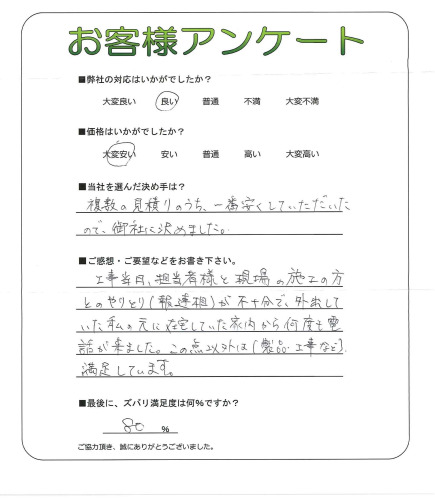 お客様アンケート
■弊社の対応はいかがでしたか？
大変良い 良い 普通 不満 大変不満
■価格はいかがでしたか？
大変安い 安い 普通 高い 大変高い
■当社を選んだ決め手は？
複数の見積りのうち、一番安くしていただいた
ので、御社に決めました。
■ご感想・ご要望などをお書き下さい。
工事当日、担当者様と現場の施工の方
とのやりとり(報連相)が不十分で、外出して
いた私の元に在宅していた家内から何度も電
話が来ました。この点以外は(製品・工事など)、
満足しています。
■最後に、ズバリ満足度は何％ですか？
80 ％
ご協力頂き、誠にありがとうございました。